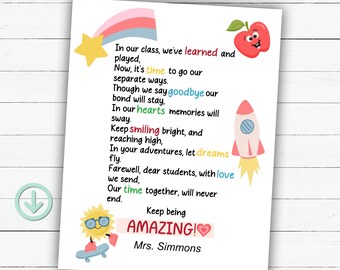 In our class, we've learned and
played,
Now, it's time to go our
separate ways.
Though we say goodbye our
bond will stay,
In our hearts memories will
sway.
Keep smiling bright, and
reaching high,
In your adventures, let dreams
fly.
Farewell, dear students, with love
we send,
Our time together, will never
end.
Keep being
AMAZING!
Mrs. Simmons